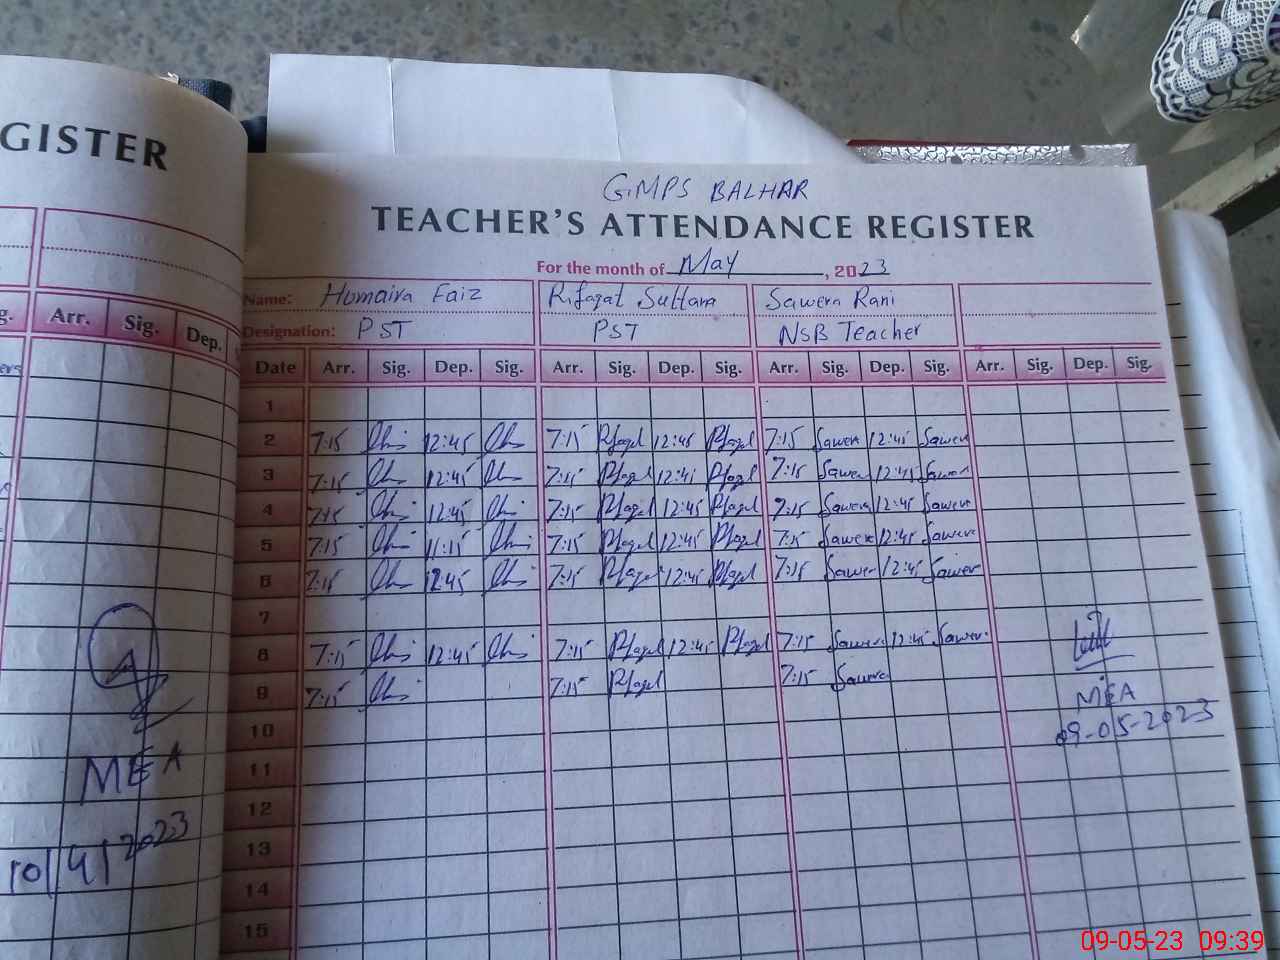 GISTER
g. Arr. Sig. Dep.
MEA
10/4/2023
GMPS BALHAR
TEACHER'S ATTENDANCE REGISTER
For the month of May, 2023
Name: Humaira Faiz Rifaqat Sultana Sawera Rani
Designation: PST PST NSB Teacher
Date Arr. Sig. Dep. Sig. Arr. Sig. Dep. Sig. Arr. Sig. Dep. Sig. Arr. Sig. Dep. Sig.
1
2 7:15 12:45 7:15 12:45 7:15 Sawera 12:45 Sawera
3 7:15 12:45 7:15 12:45 7:15 Sawera 12:45 Sawera
4 7:15 12:45 7:15 12:45 7:15 Sawera 12:45 Sawera
5 7:15 11:15 7:15 12:45 7:15 Sawera 12:45 Sawera
6 7:15 12:45 7:15 12:45 7:15 Sawera 12:45 Sawera
7
8 7:15 12:45 7:15 12:45 7:15 Sawera 12:45 Sawera
9 7:15 7:15 7:15 Sawera
MEA
10
09-05-2023
11
12
13
14
15
09-05-23 09:39